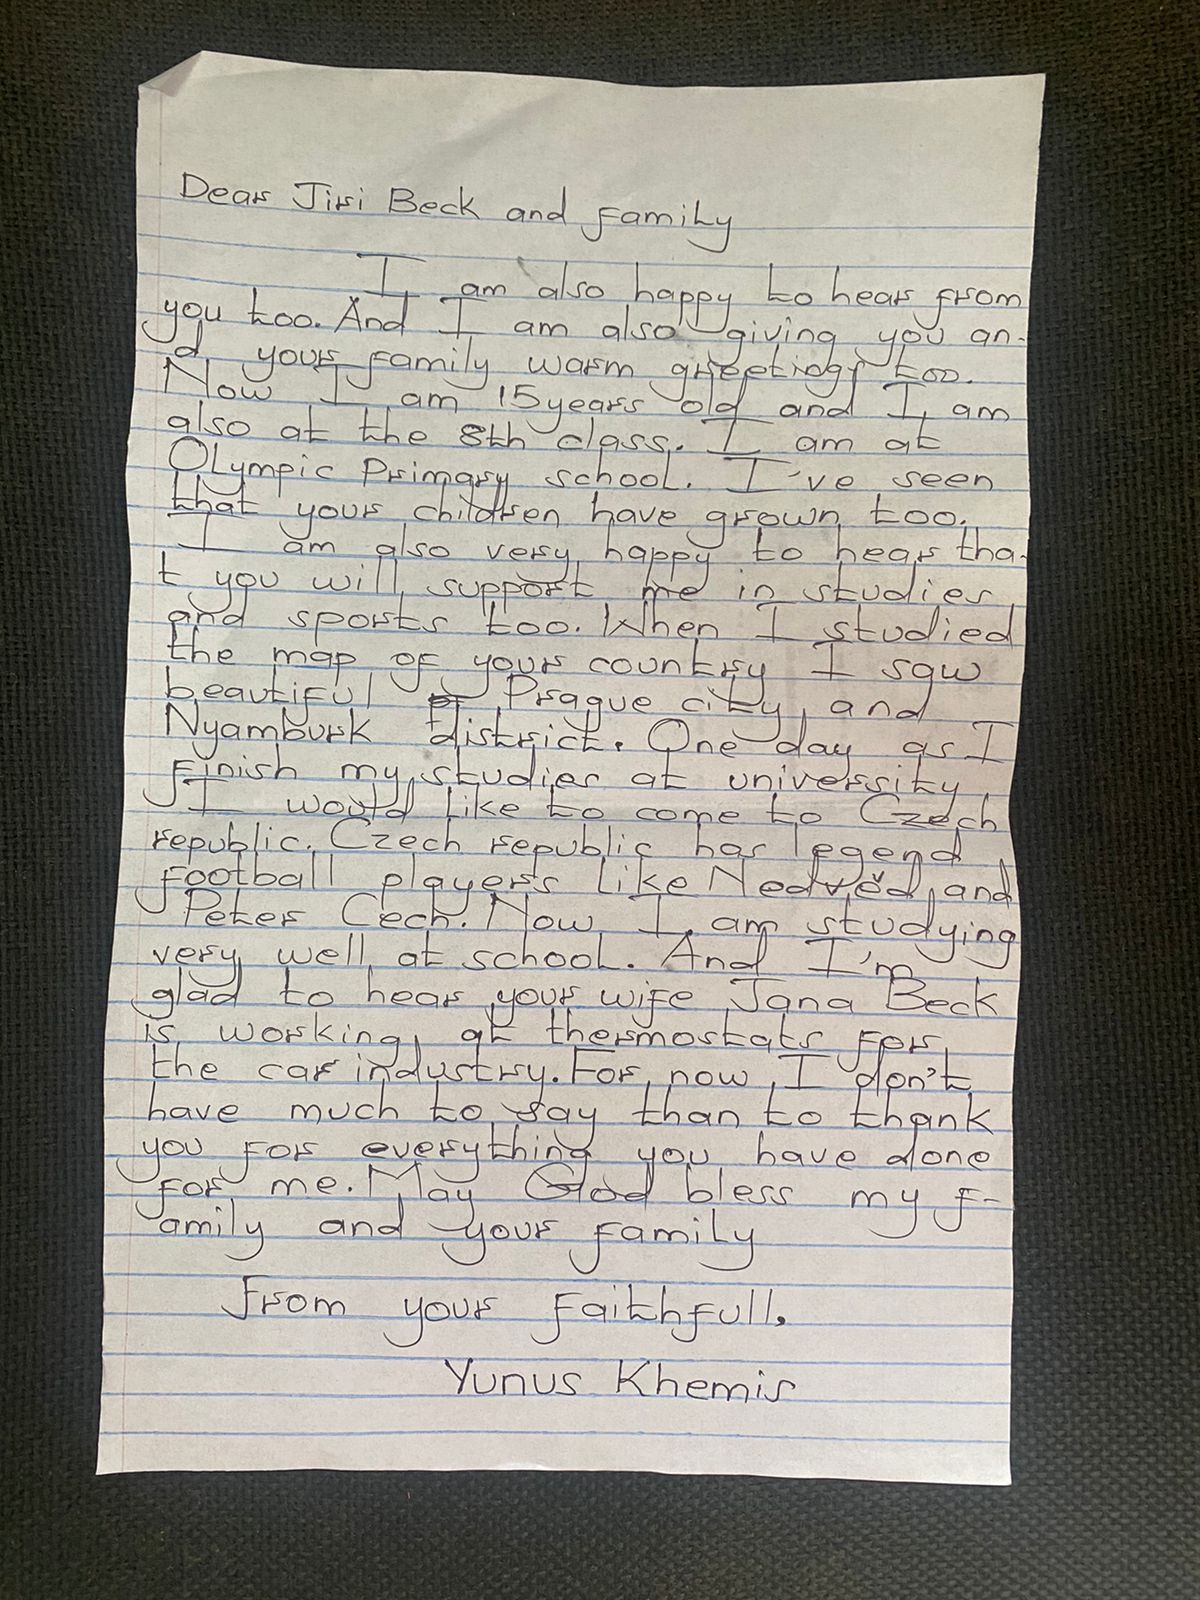 Dear Jiri Beck and family
I am also happy to hear from
you too. And I am also giving you an-
d your family warm greetings too.
Now I am 15 years old and I am
also at the 8th class. I am at
Olympic Primary school. I've seen
that your children have grown too.
I am also very happy to hear tha-
t you will support me in studies
and sports too. When I studied
the map of your country I saw
beautiful Prague city, and
Nyamburk district. One day as I
finish my studies at university,
I would like to come to Czech
republic. Czech republic has legend
football players like Nedvěd, and
Peter Cech. Now I am studying
very well at school. And I'm
glad to hear your wife Jana Beck
is working at thermostats for
the car industry. For now, I don't
have much to say than to thank
you for everything you have done
for me. May God bless my f-
amily and your family
From your faithfull,
Yunus Khemis